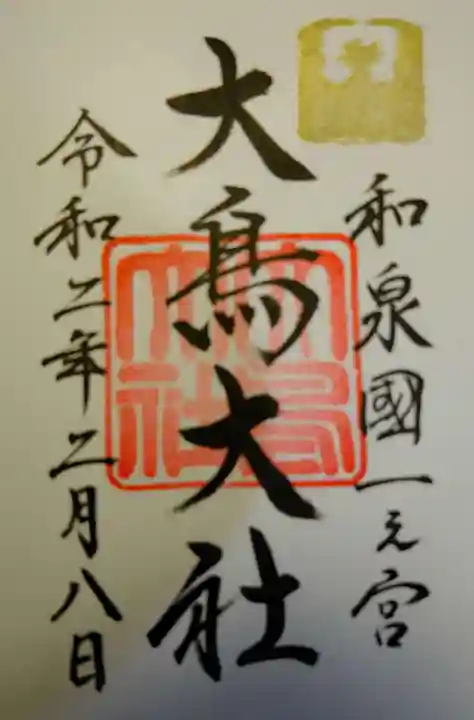 和泉國一之宮
大鳥大社
大鳥大社
令和二年二月八日